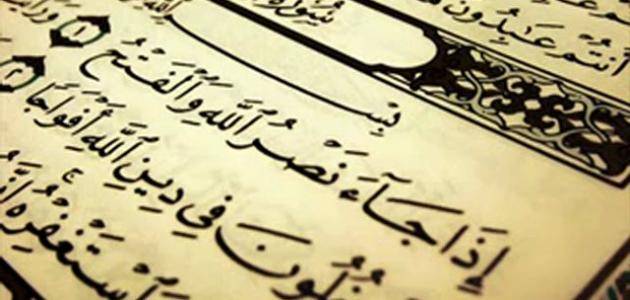 أَنتُمْ عَٰبِدُونَ
سُورَةُ
إِذَا جَآءَ نَصْرُ ٱللَّهِ وَٱلْفَتْحُ ١
خُلُونَ فِي دِينِ ٱللَّهِ أَفْوَاجًا ٢
ٱسْتَغْفِرْهُ إِنَّ